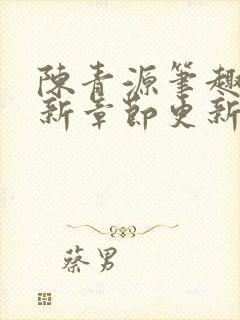 陳青源筆趣
新章節更新
蔡男